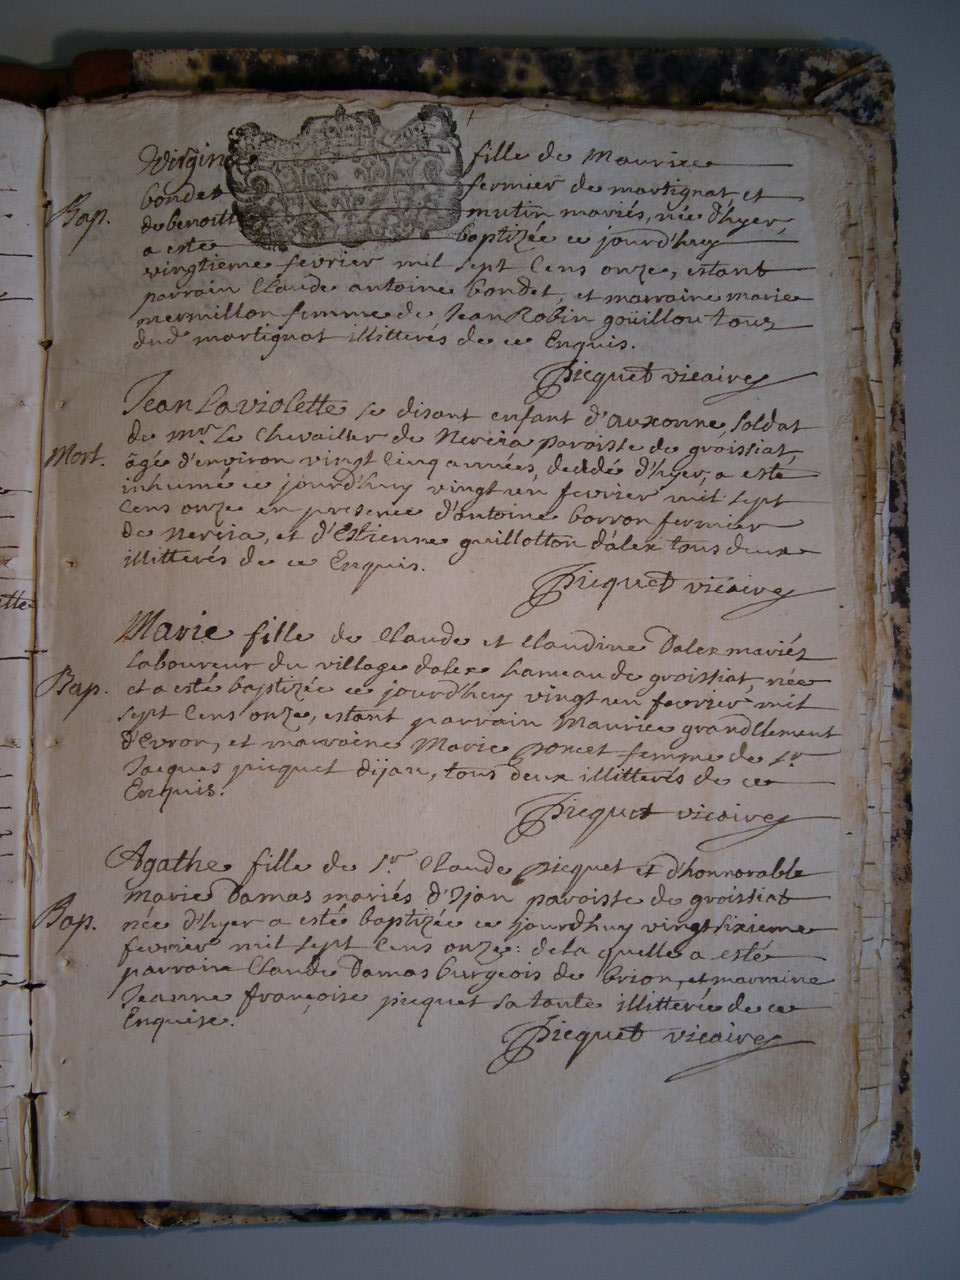 Virgine fille de Maurice
bondet fermier de martignat et
Bap. de benoitte mutin mariés, née d'hyer,
a esté baptizée ce jourd'huy
vingtieme fevrier mil sept Cens onze, estant
parrain Claude antoine bondet, et marraine marie
mermillon femme de Jean Robin goüillou tous
dud martignat illitterés de ce Enquis.
Picquet vicaire
Jean Laviolette se disant enfant d'auxonne, soldat
de mr. Le Chevailier de Nercia paroisse de groissiat,
Mort. âgé d'environ vingt Cinq années, decedé d'hyer, a esté
inhumé ce jourd'huy vingt un fevrier mil sept
Cens onze en presence d'antoine borron fermier
de Nercia, et d'Estienne guillotton d'alex tous deux
illitterés de ce Enquis.
Picquet vicaire
Marie fille de Claude et Claudine Dalex mariés
Laboureur du village dalex hameau de groissiat, née
Bap. et a esté baptizée ce jourd'huy vingt un fevrier mil
sept Cens onze, estant parrain Maurice grandClement
d'Evron, et marraine Marie poncet femme de Sr.
Jacques picquet dijan, tous deux illitterés de ce
Enquis.
Picquet vicaire
Agathe fille de Sr. Claude picquet et d'honnorable
marie Damas mariés d'Ijan paroisse de groissiat
Bap. née d'hyer a esté baptizée ce jourdhuy vingt sixieme
fevrier mil sept Cens onze: de la quelle a esté
parrain Claude Damas burgeois de brion, et marraine
Jeanne françoise picquet sa tante illitterée de ce
Enquise.
Picquet vicaire